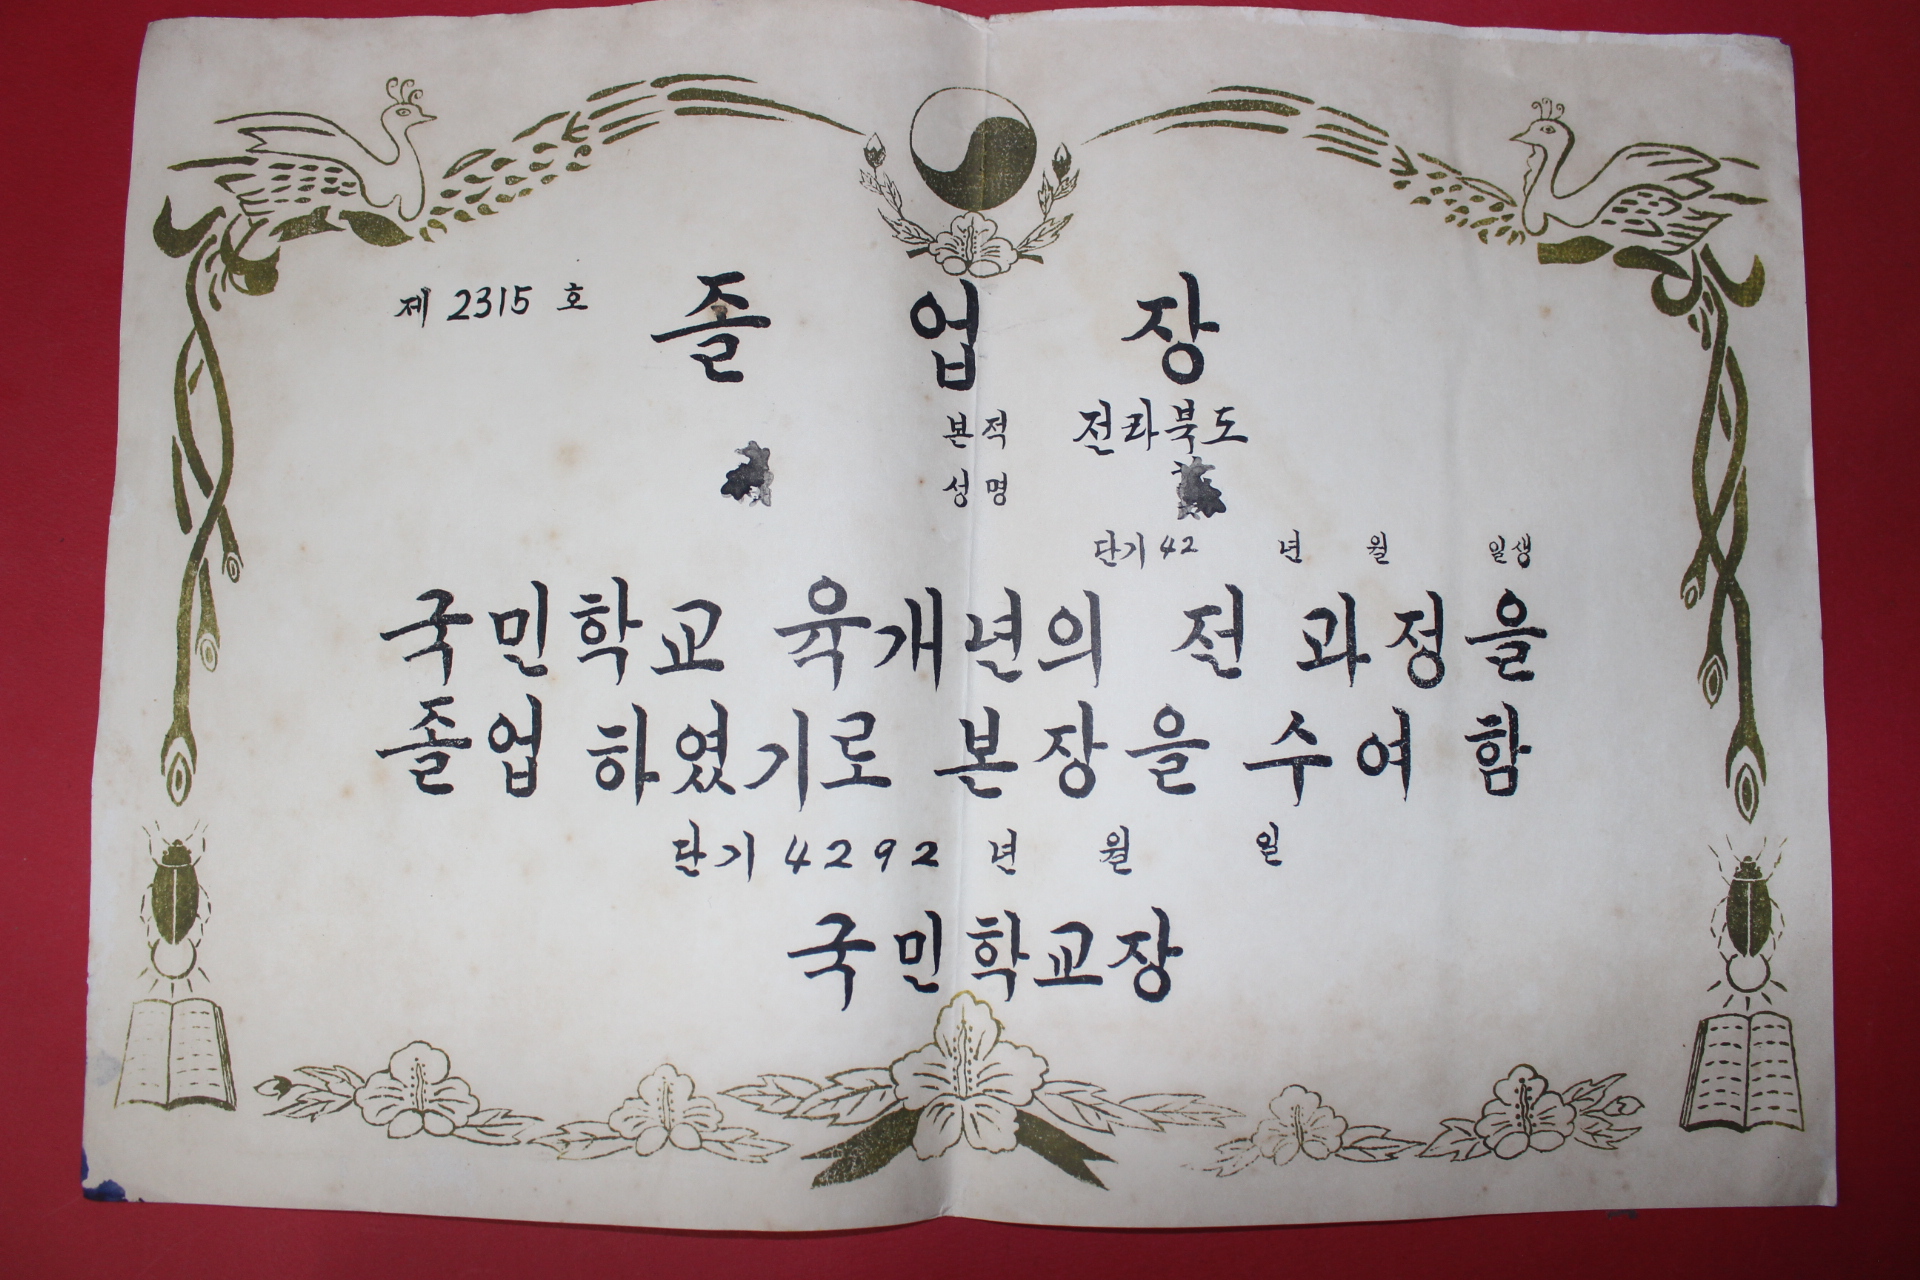 제 2315 호
졸 업 장
본적 전라북도
성명
단기 42 년 월 일생
국민학교 육개년의 전 과정을
졸업 하였기로 본장을 수여 함
단기 4292 년 월 일
국민학교장